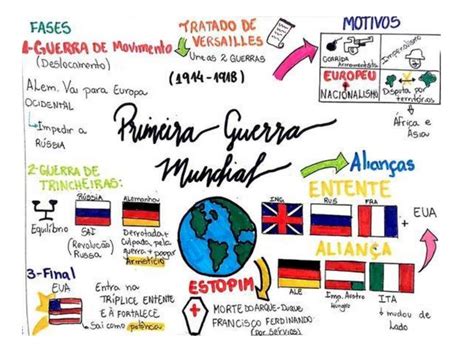 FASES
1-GUERRA DE Movimento
(Deslocamento)
ALEM. Vai para Europa
OCIDENTAL
Impedir a
RÚSSIA
TRATADO DE
VERSAILLES
Une as 2 GUERRAS
(1914-1918)
MOTIVOS
CORRIDA
Armamentista
Imperialismo
EUROPEU
NACIONALISMO
Disputa por
territórios
África e
Ásia
Primeira Guerra
Mundial
2-GUERRA DE
TRINCHEIRAS:
Equilíbrio
RÚSSIA
SAI
(Revolução)
RUSSA
Alemanha
Derrotada +
Culpada, pela
guerra + pagar
Armistício
Alianças
ENTENTE
ING
RUS
FRA
+ EUA
ALIANÇA
ALE
Imp. Austro
Húngaro
ITA
mudou de
Lado
3-Final
EUA
Entra na
TRÍPLICE ENTENTE
E À FORTALECE
Sai como potência
ESTOPIM
MORTE DO ARQUE-Duque
FRANCISCO FERDINANDO
(por Sérvios)